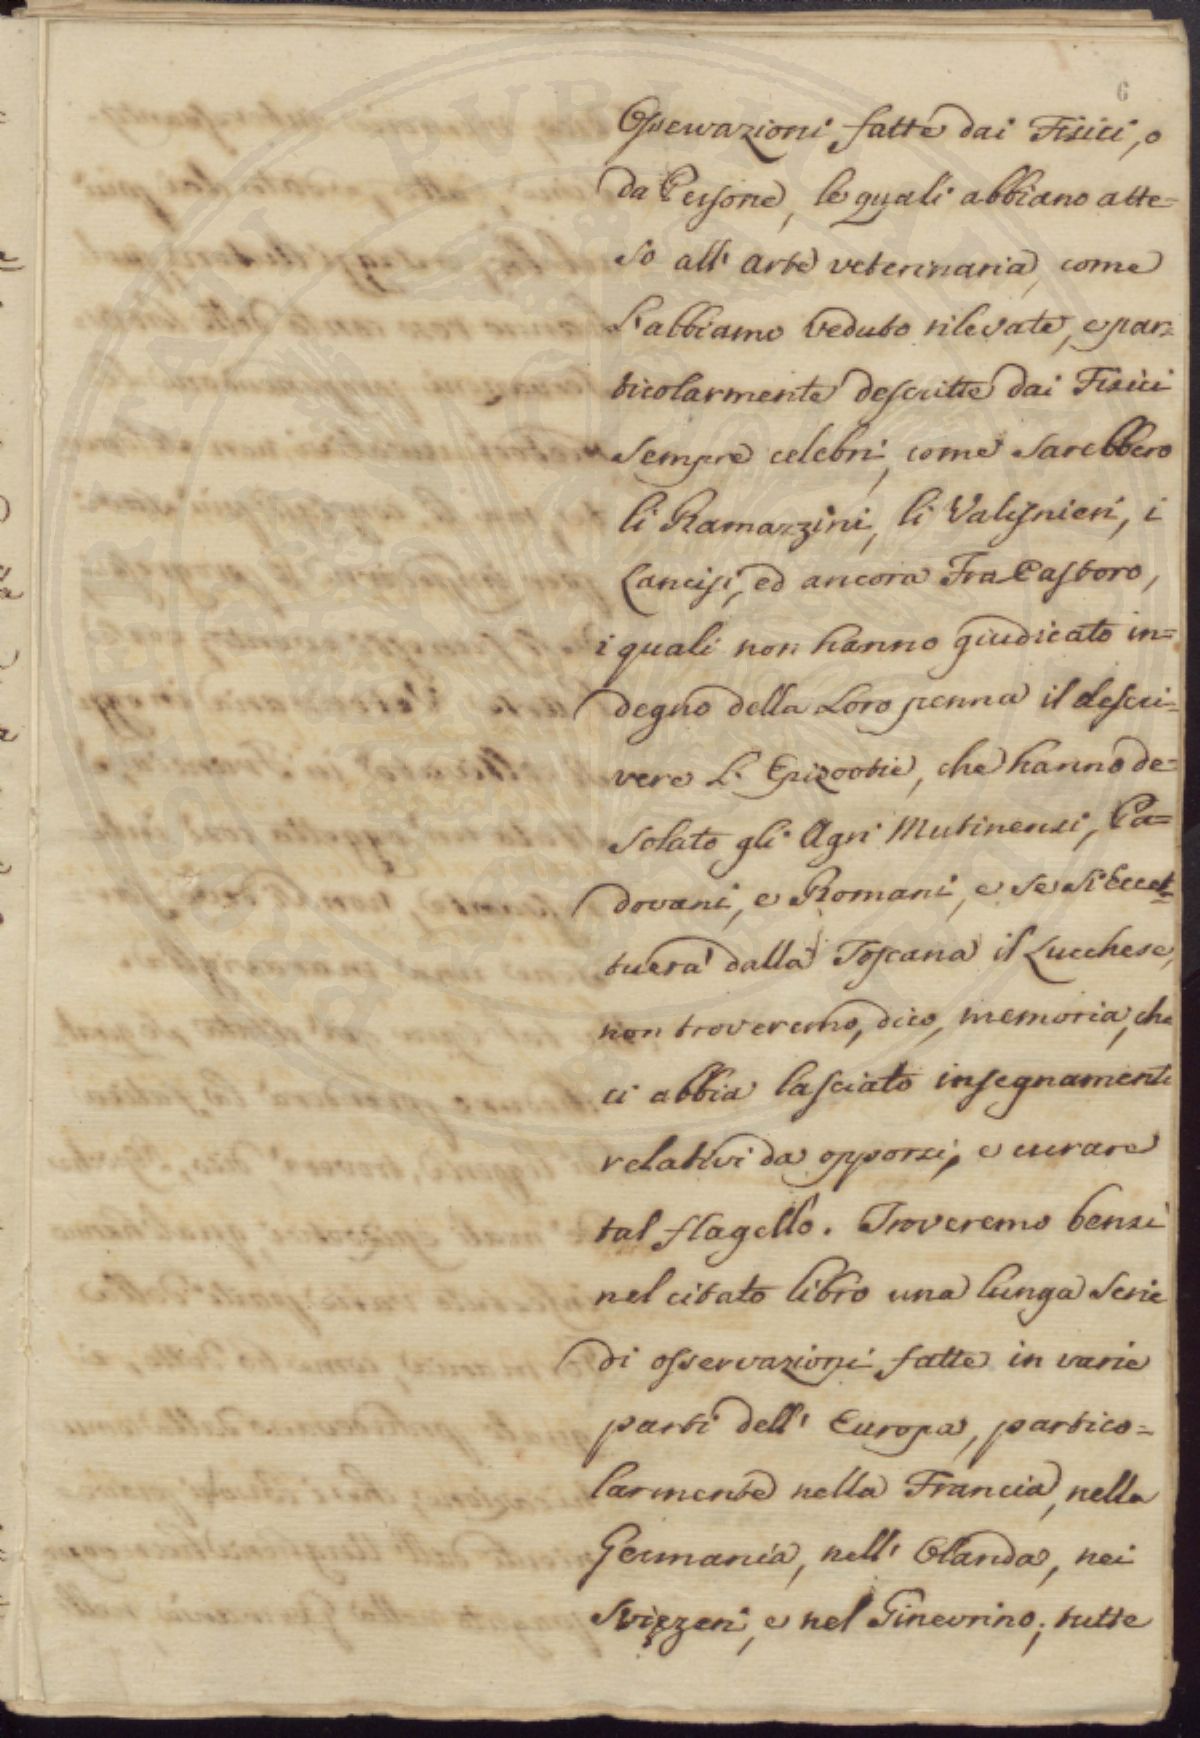 6
Osservazioni fatte dai Fisici, o
da Persone, le quali abbiano atte=
so all' arte veterinaria, come
l'abbiamo veduto rilevate, e par=
ticolarmente descritte dai Fisici
sempre celebri, come sarebbero
li Ramazzini, li Valisnieri, i
Lancisi, ed ancora Fra Castoro,
i quali non hanno giudicato in=
degno della Loro penna il descri=
vere L' Epizootie, che hanno de=
solato gli Agri Mutinensi, Pa=
dovani, e Romani, e se si Eccet=
tuerà dalla Toscana il Lucchese,
non troveremo, dico, memoria, che
ci abbia lasciato insegnamenti
relativi da opporsi, e curare
tal flagello. Troveremo bensi
nel citato libro una lunga serie
di osservazioni fatte in varie
parti dell' Europa, partico=
larmente nella Francia, nella
Germania, nell' Olanda, nei
Svizzeri, e nel Ginevrino; tutte